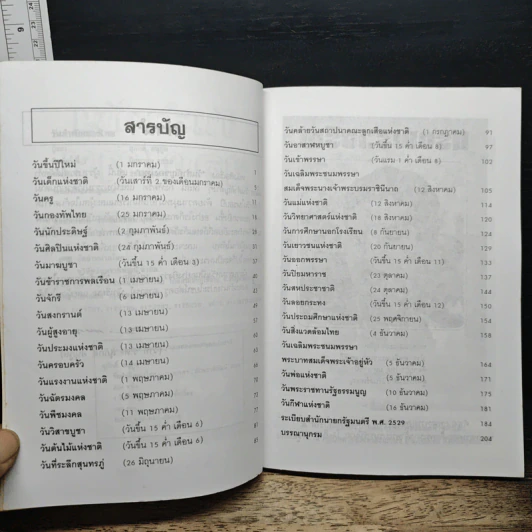 สารบัญ
วันขึ้นปีใหม่ (1 มกราคม) 1
วันเด็กแห่งชาติ (วันเสาร์ที่ 2 ของเดือนมกราคม)
วันครู (16 มกราคม)
วันกองทัพไทย (25 มกราคม)
วันนักประดิษฐ์ (2 กุมภาพันธ์)
วันศิลปินแห่งชาติ (24 กุมภาพันธ์)
วันมาฆบูชา (วันขึ้น 15 ค่ำ เดือน 3)
วันข้าราชการพลเรือน (1 เมษายน)
วันจักรี (6 เมษายน)
วันสงกรานต์ (13 เมษายน)
วันผู้สูงอายุ (13 เมษายน)
วันประมงแห่งชาติ (13 เมษายน)
วันครอบครัว (14 เมษายน)
วันแรงงานแห่งชาติ (1 พฤษภาคม)
วันฉัตรมงคล (5 พฤษภาคม)
วันพืชมงคล (11 พฤษภาคม)
วันวิสาขบูชา (วันขึ้น 15 ค่ำ เดือน 6)
วันต้นไม้แห่งชาติ (วันขึ้น 15 ค่ำ เดือน 6)
วันที่ระลึกสุนทรภู่ (26 มิถุนายน)
วันคล้ายวันสถาปนาคณะลูกเสือแห่งชาติ (1 กรกฎาคม) 91
วันอาสาฬหบูชา (วันขึ้น 15 ค่ำ เดือน 8) 97
วันเข้าพรรษา (วันแรม 1 ค่ำ เดือน 8) 102
วันเฉลิมพระชนมพรรษา
สมเด็จพระนางเจ้าพระบรมราชินีนาถ (12 สิงหาคม) 105
วันแม่แห่งชาติ (12 สิงหาคม) 114
วันวิทยาศาสตร์แห่งชาติ (18 สิงหาคม) 120
วันการศึกษานอกโรงเรียน (8 กันยายน) 124
วันเยาวชนแห่งชาติ (20 กันยายน) 127
วันออกพรรษา (วันขึ้น 15 ค่ำ เดือน 11) 133
วันปิยมหาราช (23 ตุลาคม) 137
วันสหประชาชาติ (24 ตุลาคม) 144
วันลอยกระทง (วันขึ้น 15 ค่ำ เดือน 12) 150
วันประถมศึกษาแห่งชาติ (25 พฤศจิกายน) 154
วันสิ่งแวดล้อมไทย (4 ธันวาคม) 158
วันเฉลิมพระชนมพรรษา
พระบาทสมเด็จพระเจ้าอยู่หัว (5 ธันวาคม) 164
วันพ่อแห่งชาติ (5 ธันวาคม) 171
วันพระราชทานรัฐธรรมนูญ (10 ธันวาคม) 175
วันกีฬาแห่งชาติ (16 ธันวาคม) 181
ระเบียบสำนักนายกรัฐมนตรี พ.ศ. 2529 184
บรรณานุกรม 204